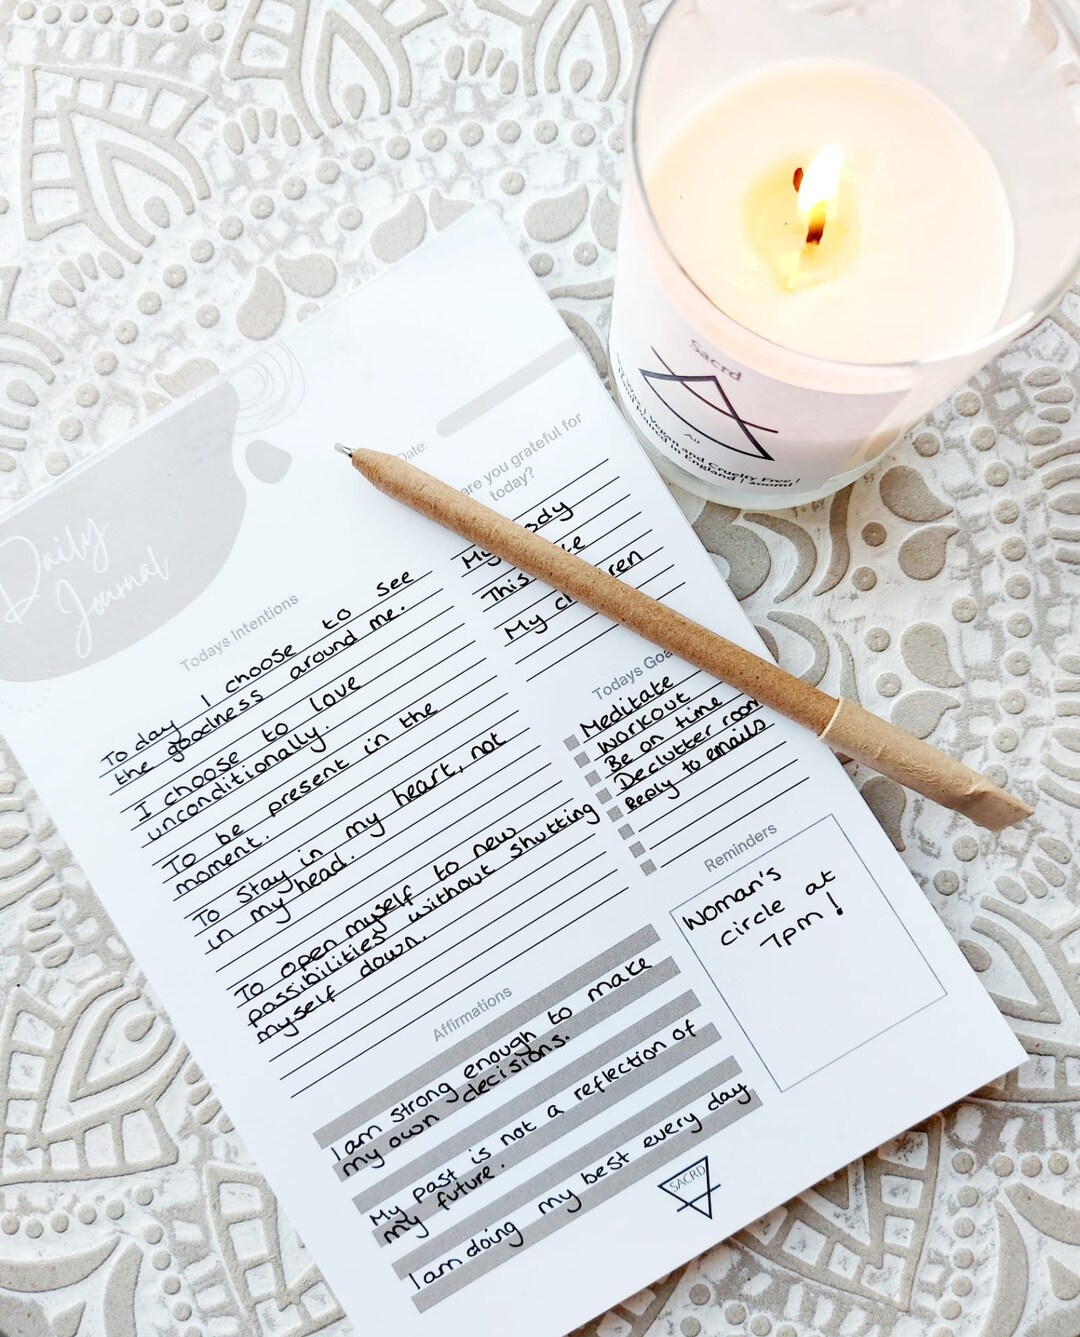 Daily
Journal
Date:
Todays Intentions
Today I choose to see
the goodness around me.
I choose to love
unconditionally.
To be present in the
moment.
To stay in my heart, not
in my head.
To open myself to new
possibilities without shutting
myself down.
are you grateful for
today?
My
This
My
Todays
Meditate
Workout
Be on time
Declutter room
Reply to emails
Reminders
Woman's
circle at
7pm!
Affirmations
I am strong enough to make
my own decisions.
My past is not a reflection of
my future.
I am doing my best every day
SACRD
Sacrd
Air
Vegan and Cruelty Free |
Poured in England | 400ml